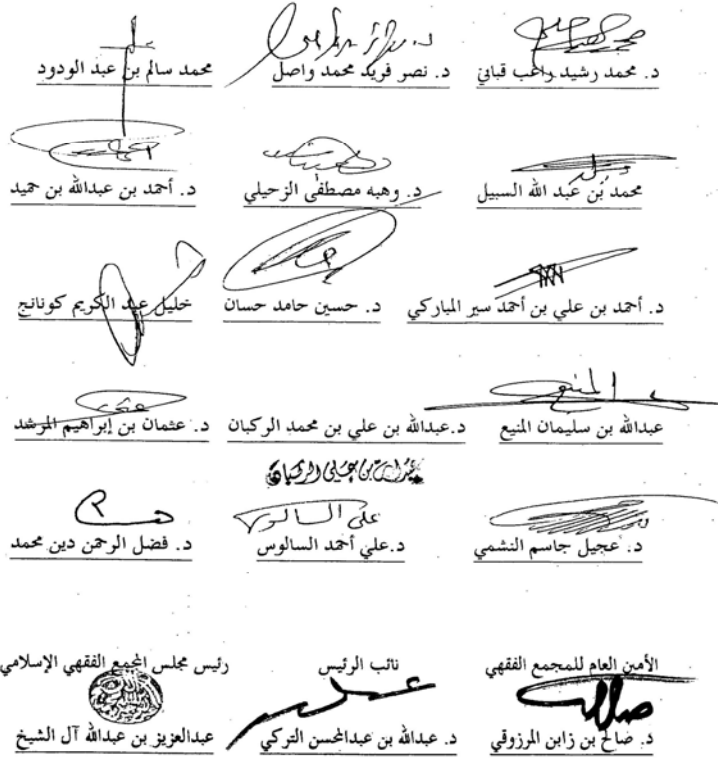 د. محمد رشيد راغب قباني د. نصر فريد محمد واصل محمد سالم بن عبد الودود
محمد بن عبد الله السبيل د. وهبه مصطفى الزحيلي د. أحمد بن عبدالله بن حميد
د. أحمد بن علي بن أحمد سير المباركي د. حسين حامد حسان خليل عبد الكريم كونانج
المنيع
عبدالله بن سليمان المنيع د.عبدالله بن علي بن محمد الركبان د. عثمان بن إبراهيم المرشد
علي السالوس
د. عجيل جاسم النشمي د.علي أحمد السالوس د. فضل الرحمن دين محمد
الأمين العام للمجمع الفقهي نائب الرئيس رئيس مجلس المجمع الفقهي الإسلامي
د. صالح بن زابن المرزوقي د. عبدالله بن عبدالمحسن التركي عبدالعزيز بن عبدالله آل الشيخ